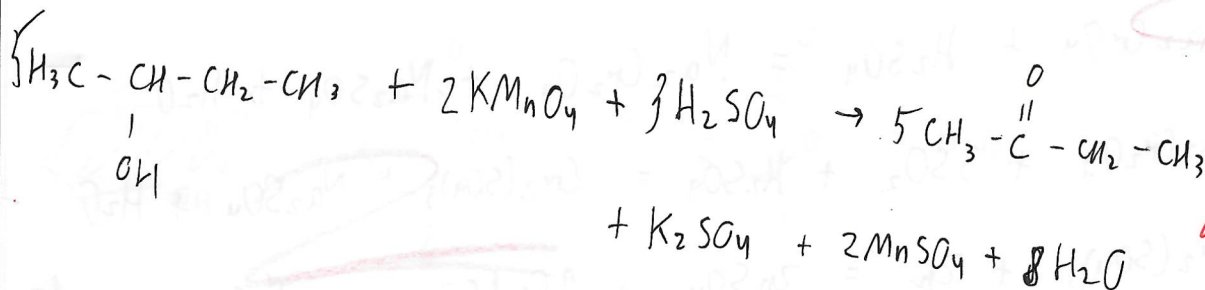 5H₃C - CH - CH₂ - CH₃ + 2KMnO₄ + 3H₂SO₄ → 5CH₃ - C - CH₂ - CH₃
O
OH
+ K₂SO₄ + 2MnSO₄ + 8H₂O